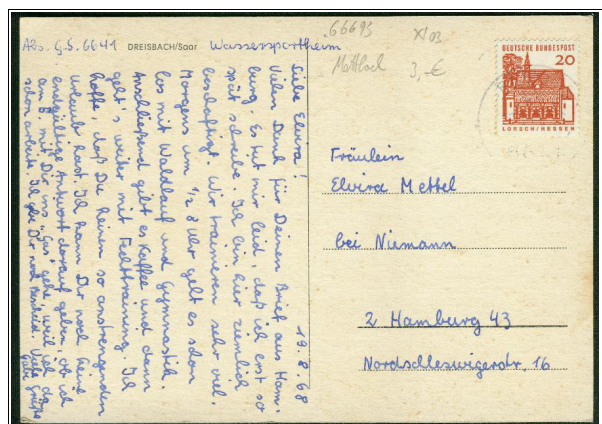 Abs. G.S. 6641 DREISBACH/Saar Wassersportheim
66693
XI/03
Mettlach 3,-€
DEUTSCHE BUNDESPOST
20
LORSCH/HESSEN
19.8.68
Liebe Elvira!
Vielen Dank für Deinen Brief aus Ham-
burg. Es tut mir leid, daß ich erst so
spät schreibe. Ich bin hier ziemlich
beschäftigt. Wir trainieren sehr viel.
Morgens um 1/2 8 Uhr geht es schon
los mit Waldlauf und Gymnastik.
Anschließend gibt es Kaffee und dann
geht's weiter mit Techttraining. Ich
hoffe, daß Du keinen so anstrengenden
Urlaub hast. Ich kann Dir noch keine
endgültige Antwort darauf geben, ob ich
am 6. mit Dir ins "Gas" gehe, weil ich da
schon arbeite. Ich gebe Dir noch Bescheid. Viele Grüße
Gabi
Fräulein
Elvira Mettel
bei Niemann
2 Hamburg 43
Nordschleswigerstr. 16